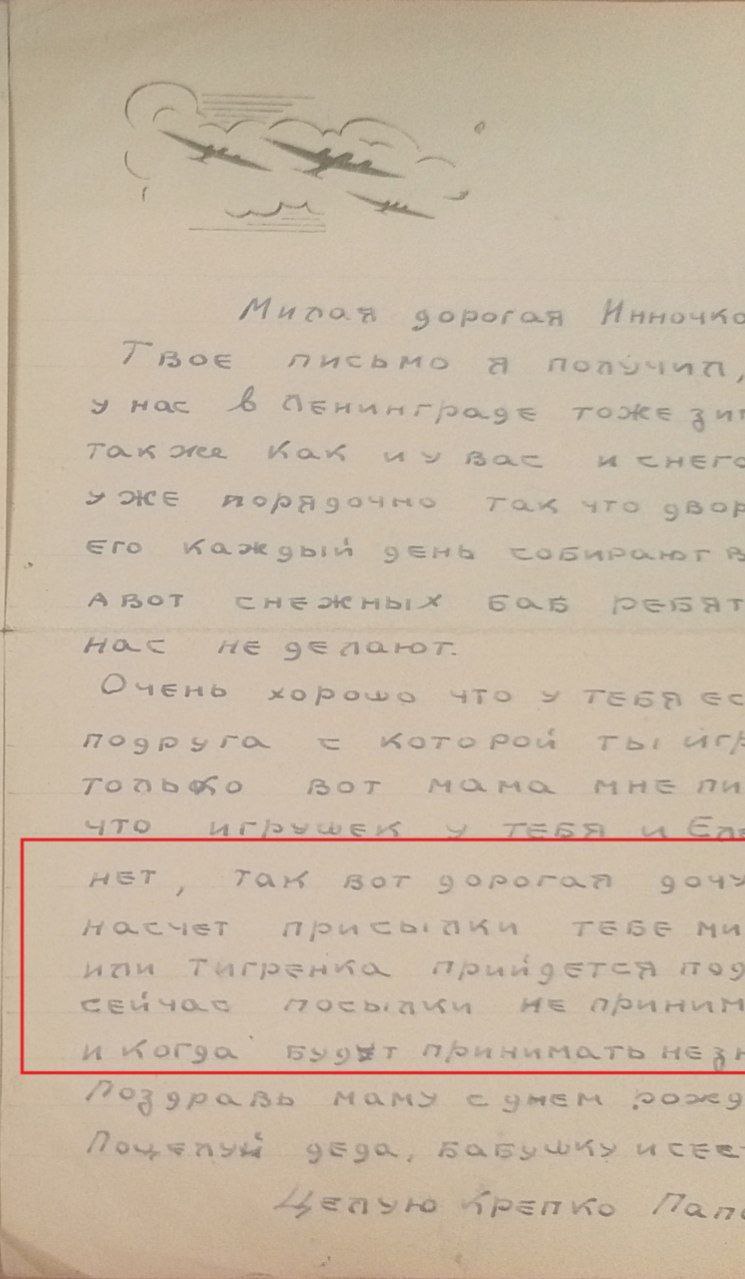 Милая дорогая Инночка
Твое письмо я получил,
у нас в Ленинграде тоже
также как и у вас и снего
уже порядочно так что двор
его каждый день собирают в
А вот снежных баб ребят
нас не делают.
Очень хорошо что у тебя ес
подруга с которой ты игр
только вот мама мне пи
что игрушек у тебя и Ел
нет, так вот дорогая дочу
насчет присылки тебе ми
или Тигренка прийдется под
сейчас посылки не приним
и когда будут принимать не зн
Поздравь маму с днем рожд
Поцелуй деда, бабушку и
Целую крепко Папа